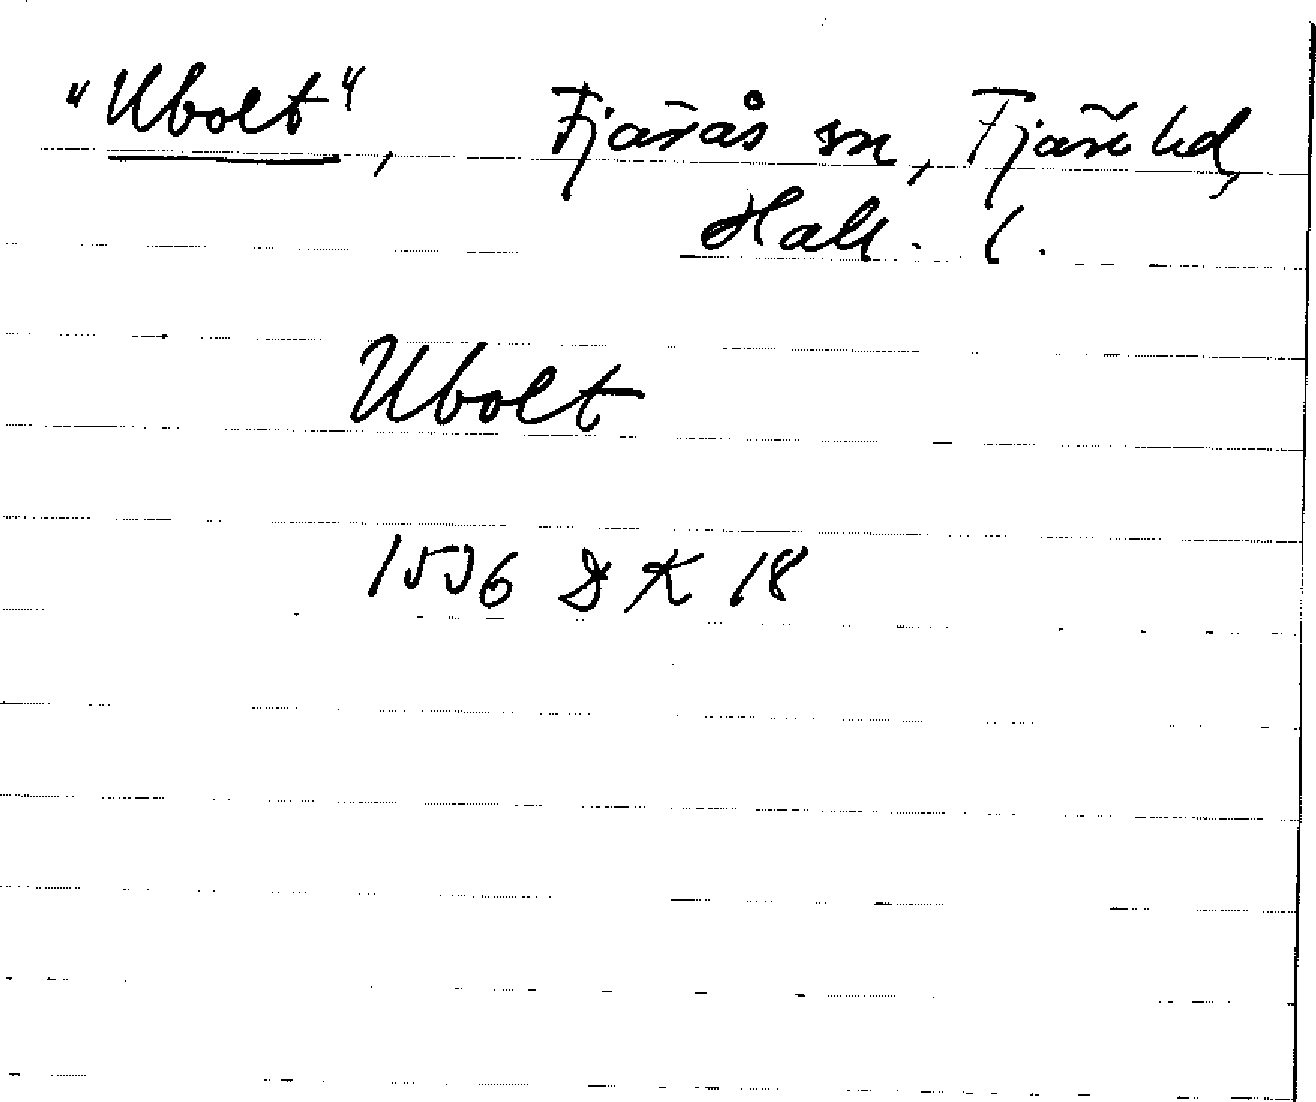 "Ubolt", Fjärås sn, Fjäre hd,
Hall. l.
Ubolt
1536 DK 18